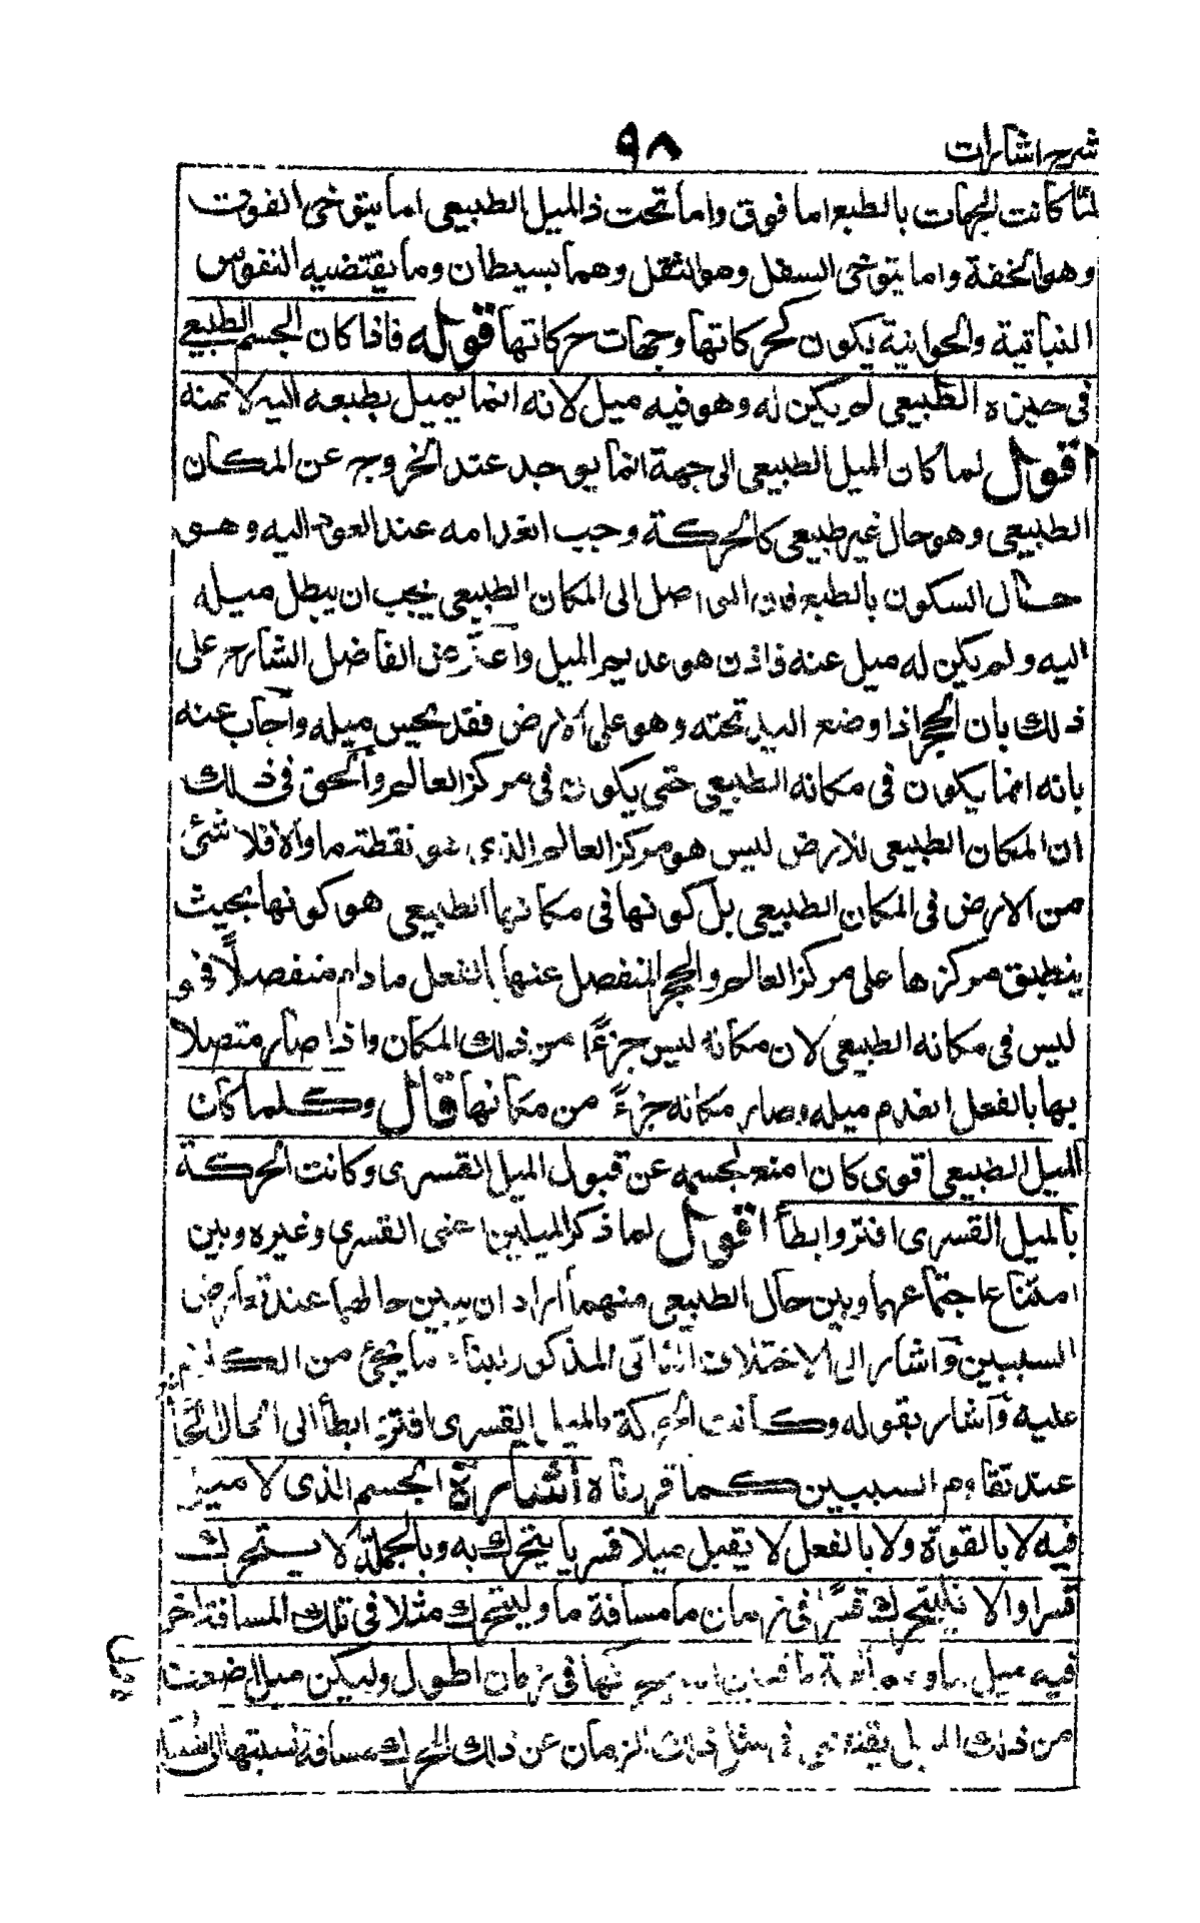 شرح اشارات
٩٨
لمّا كانت الجهات بالطبع اما فوق واما تحت فالميل الطبيعي اما يتوخى الفوق
وهو الخفة واما يتوخى السفل وهو الثقل وهما بسيطان وما يقتضيه النفوس
النباتية والحيوانية يكون كحركاتها وجهات حركاتها قوله فاذا كان الجسم الطبيعي
فى حيزه الطبيعي لم يكن له وهو فيه ميل لانه انما يميل بطبعه اليه لا عنه
اقول لما كان الميل الطبيعي الى جهة انما يوجد عند الخروج عن المكان
الطبيعي وهو حال غير طبيعي كالحركة وجب انعدامه عند العود اليه وهو
حال السكون بالطبع فان الواصل الى المكان الطبيعي يجب ان يبطل ميله
اليه ولم يكن له ميل عنه فاذن هو عديم الميل واعترض الفاضل الشارح على
ذلك بان الحجر اذا وضع اليد تحته وهو على الارض فقد يحس ميله واجاب عنه
بانه انما يكون فى مكانه الطبيعي حتى يكون فى مركز العالم والحق فى ذلك
ان المكان الطبيعي للارض ليس هو مركز العالم الذى هو نقطة ما والا فلا شئ
من الارض فى المكان الطبيعي بل كونها فى مكانها الطبيعي هو كونها بحيث
ينطبق مركزها على مركز العالم والحجر المنفصل عنها بالفعل ما دام منفصلًا فهو
ليس فى مكانه الطبيعي لان مكانه ليس جزءًا من ذلك المكان واذا صار متصلا
بها بالفعل انعدم ميله وصار مكانه جزءً من مكانها قال وكلما كان
الميل الطبيعي اقوى كان امنع لجسمه عن قبول الميل القسرى وكانت الحركة
بالميل القسرى افتر وابطأ اقول لما ذكر الميلين اعنى القسرى وغيره وبين
امتناع اجتماعهما وبين حال الطبيعي منهما اراد ان يبين حالهما عند تعارض
السببين واشار الى الاختلاف الذاتى المذكور بناء ما يجئ من الكلام
عليه واشار بقوله وكانت الحركة بالميل القسرى افتر وابطأ الى الحال
عند تقاوم السببين كما قررناه اشارة الجسم الذى لا ميل
فيه لا بالقوة ولا بالفعل لا يقبل ميلا قسريا يتحرك به وبالجملة لا يتحرك
قسرا والا فليتحرك قسرًا فى زمان ما مسافة ما وليتحرك مثلا فى تلك المسافة اخر
فيه ميل ما فى زمان اطول وليكن ميل اضعف
من ذلك الميل يقتضى فى مثل ذلك الزمان عن ذلك المحرك مسافة نسبتها الى